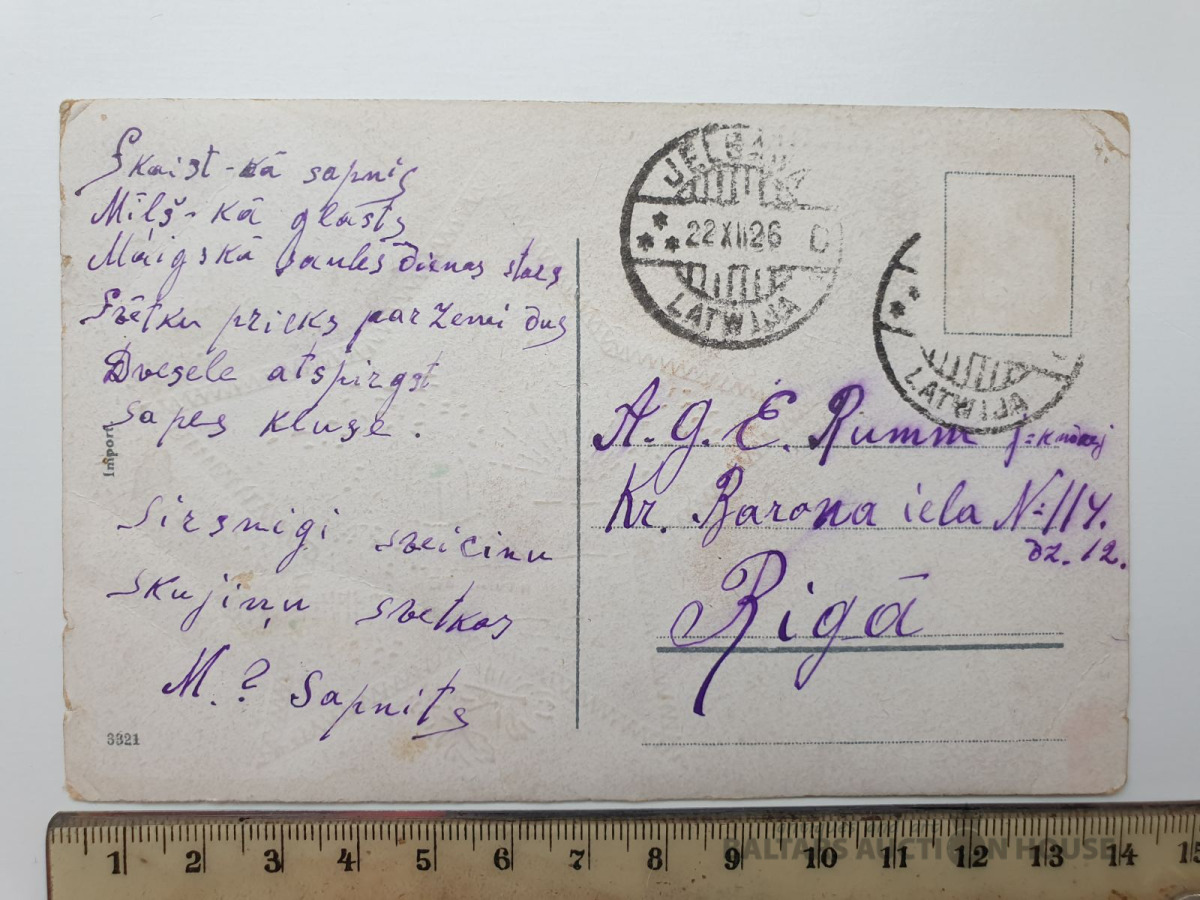 Skaist-kā sapnis
Mīļš-kā glāsts
Maigskā saules dienas stars
Svētku prieks par Zemi dus
Dvesele atspirgst
sapes kluse.
Sirsnigi sveicinu
skujiņu svetkos
M.? Sapnits
Import
3321
JELGAWA
22 XII 26 C
LATWIJA
LATWIJA
A. G. E. Rumm
Kr. Barona iela № 114.
dz. 12.
Rigā
1 2 3 4 5 6 7 8 9 10 11 12 13 14 15
BALTARS AUCTION HOUSE